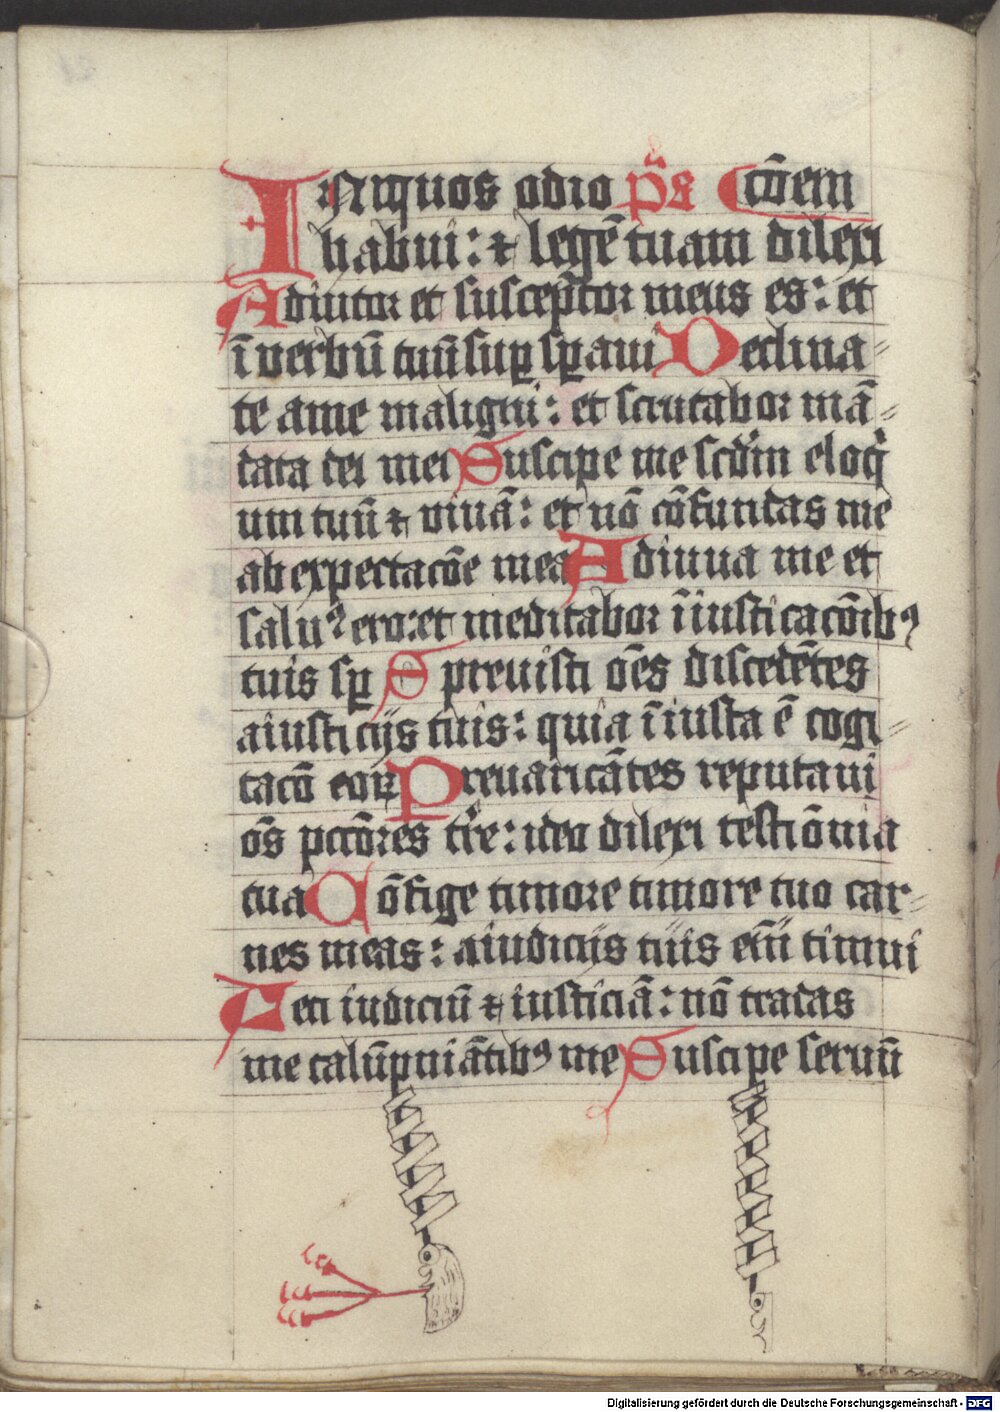 INiquos odio p̃s cõem
habui: ⁊ legẽ tuam dilexi
Adiutor et suscep̃tor meus es: et
ĩ verbũ tuũ suꝑ sꝑaui Declina=
te ame maligni: et scrutabor mã=
data dei mei Suscipe me scd̾m eloq̾
um tuũ ⁊ viuã: et nõ cõfundas me
ab expectacõe mea Adiuua me et
saluꝰ ero: et meditabor ĩ iusticacõibꝰ
tuis sꝑ Spreuisti oẽs discedẽtes
aiusticijs tuis: quia ĩiusta ẽ cogi=
tacõ eoꝝ Preuaricãtes reputaui
oẽs pccõres tr̃e: ideo dilexi testiõnia
tua Cõfige timore timore tuo car=
nes meas: aiudicijs tuis eĩm timui
Feci iudiciũ ⁊ iusticiã: nõ tradas
me calũpniãtibꝰ me Suscipe seruũ
Digitalisierung gefördert durch die Deutsche Forschungsgemeinschaft - DFG